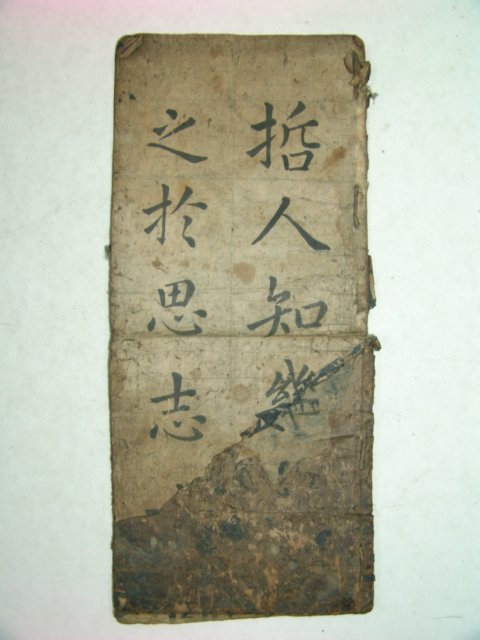 哲人知幾
之於思志